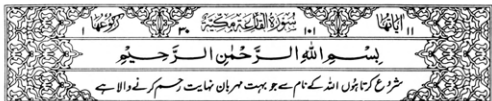 اٰيَاتُهَا ١١ ١٠١ سُوْرَةُ الْقَارِعَةِ مَكِّيَّةٌ ٣٠ رُكُوْعُهَا ١
بِسْمِ اللهِ الرَّحْمٰنِ الرَّحِيْمِ
شروع کرتا ہوں اللہ کے نام سے جو بہت مہربان نہایت رحم کرنے والا ہے